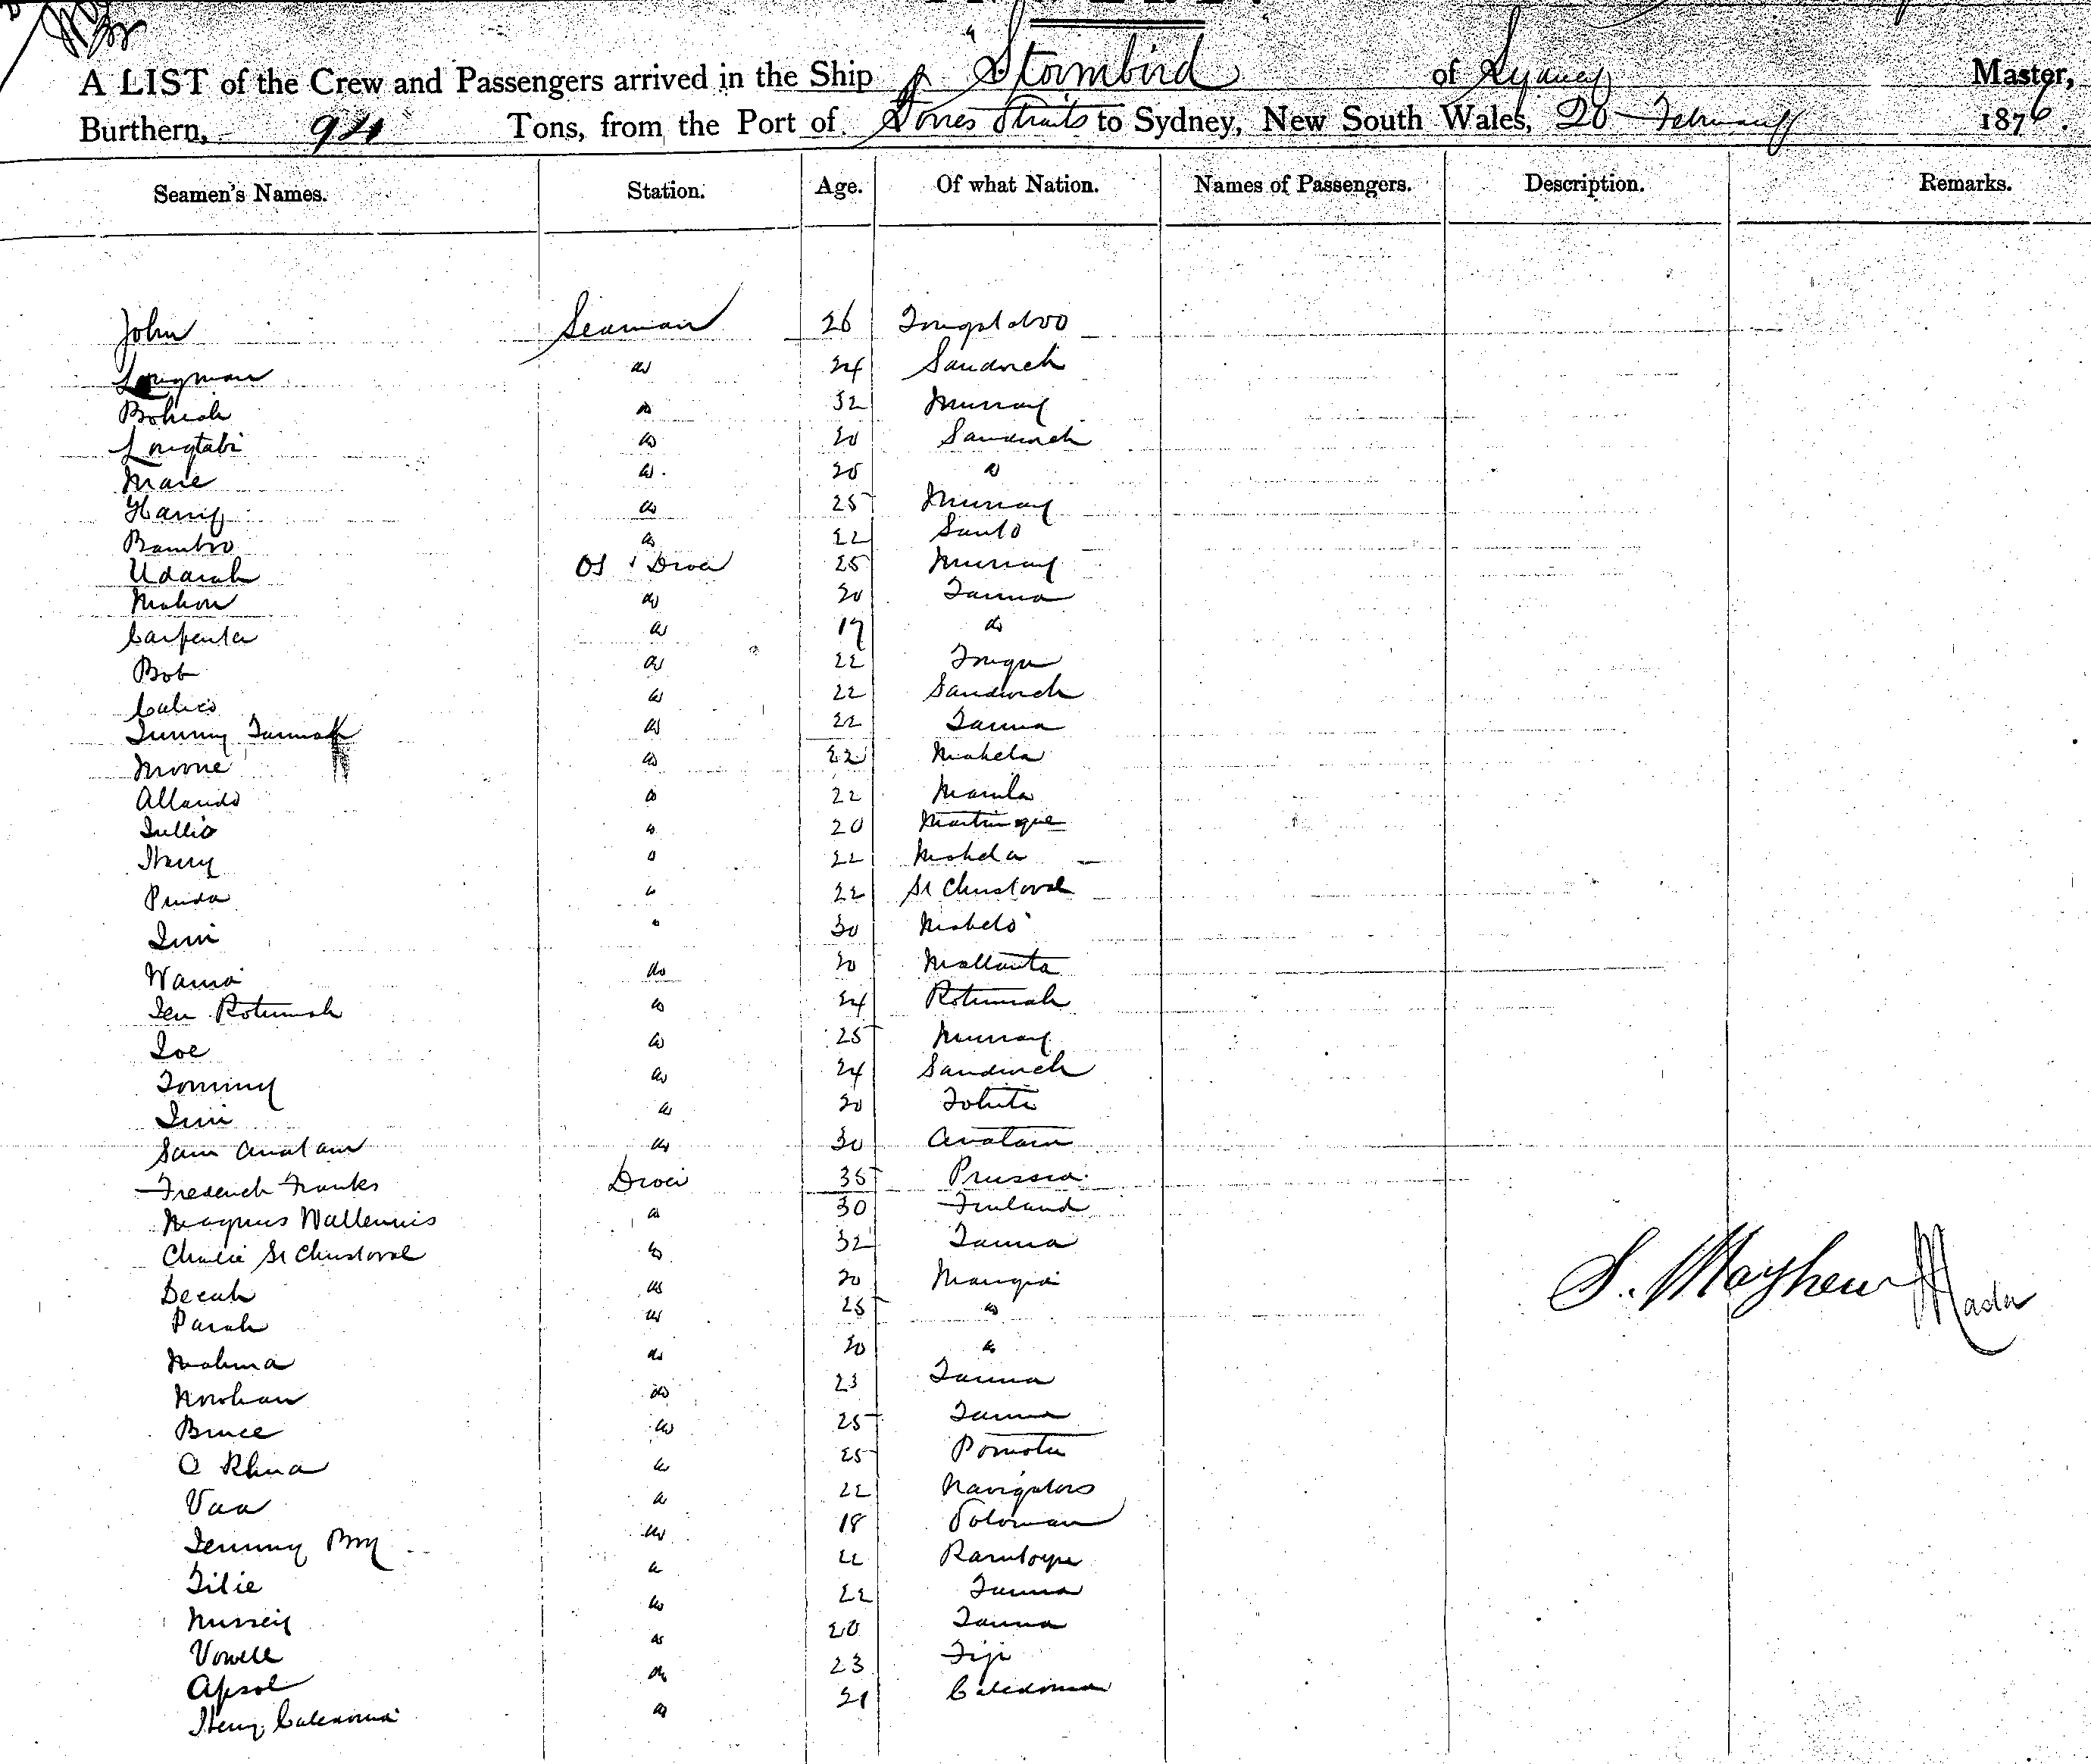 "Stormbird"
A LIST of the Crew and Passengers arrived in the Ship Stormbird of Sydney Master,
Burthern, 94 Tons, from the Port of Torres Straits to Sydney, New South Wales, 20 February 1876.
Seamen's Names. Station. Age. Of what Nation. Names of Passengers. Description. Remarks.
John Seaman 26 Tongataboo
Longman do 24 Sandwich
do 32 Murray
Longtabi do 20 Sandwich
Mare do 20 do
Harry do 25 Murray
Bamboo do 22 Santo
Udarah OS & Diver 25 Murray
do 20 Tanna
Carpenter do 19 do
Bob do 22 Tonga
Calico do 22 Sandwich
Jimmy Tannah do 22 Tanna
do 22
do 22 Manila
Tullio do 20 Martinque
Harry do 22
do 22 St Christoval
Jim do 30
do 20 Mallanta
Rotumah do 24 Rotumah
Joe do 25 Murray
Tommy do 24 Sandwich
Jim do 20 Tahiti
Sam Anatam do 30 Anatam
Frederich Franks Diver 35 Prussia
Magnus Wallennis do 30 Finland
Charlie St Christoval do 32 Tanna
do 20
Parah do 25 do
do 20 do
do 23 Tanna
Bruce do 25 Tanna
do 25 Pomotu
Vaa do 22 Navigators
Jemmy Boy do 18 Soloman
Tilie do 22
do 22 Tanna
Vowell do 20 Tanna
do 23 Fiji
Henry Caledonia do 21 Caledonia
S. Mayhew Master